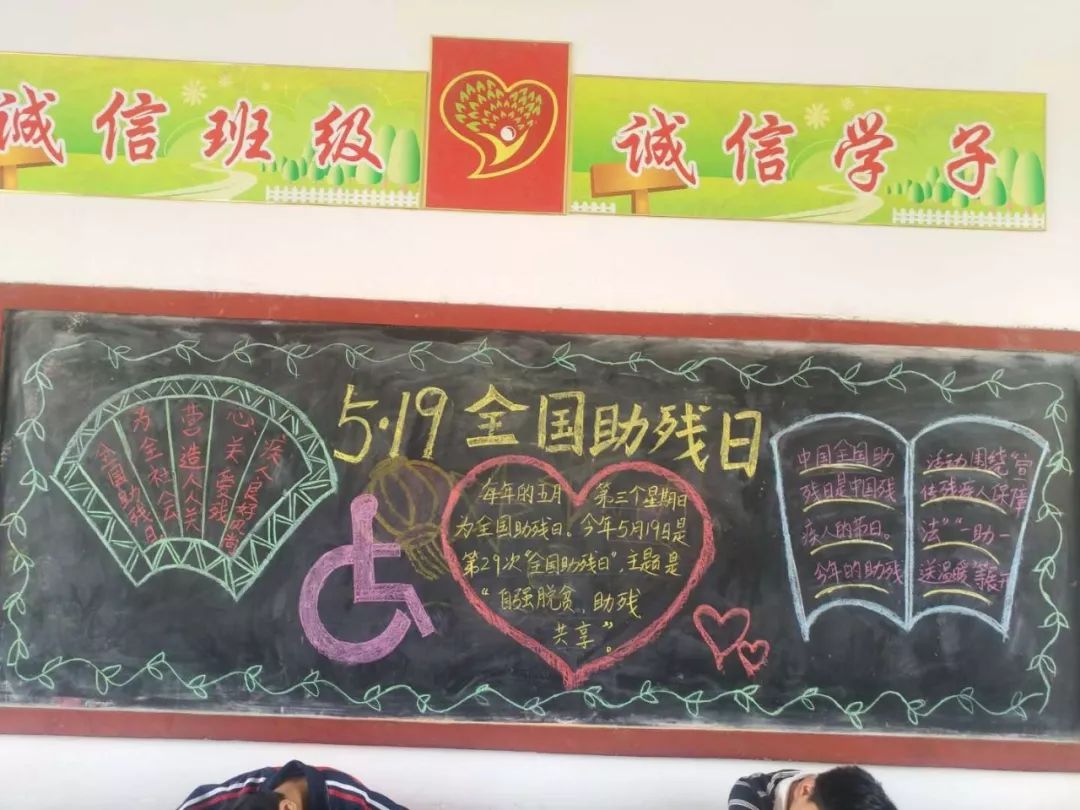 诚信班级
诚信学子
5·19全国助残日
全国助残日
为全社会
营造人人关
心关爱残
疾人良好风尚
每年的五月 第三个星期日
为全国助残日。今年5月19日是
第29次“全国助残日”,主题是
“自强脱贫,助残
共享”。
中国全国助
残日是中国残
疾人的节日。
今年的助残
活动围绕“宣
传残疾人保障
法”“助一
送温暖”等展开